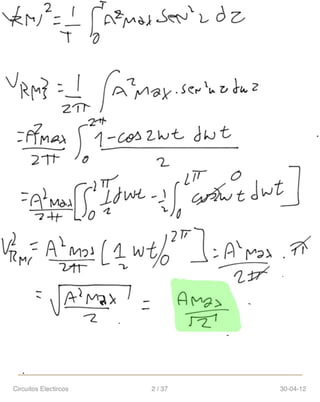 VRMS² = 1/T ∫₀ᵀ A²Max sen² z dz
VRMS² = 1/2π ∫ A²Max . sen² wz dwz
= A²max/2π ∫₀²π 1-cos2wt dwt / 2
= A²Max/2π [∫₀²π 1/2 dwt - 1/2 ∫₀²π cos2wt dwt] 0
V²RMS = A²Max/2π [1/2 wt/₀²π] = A²Max/2π . π
= √A²Max/2 = AMax/√2
Circuitos Electircos 2 / 37 30-04-12